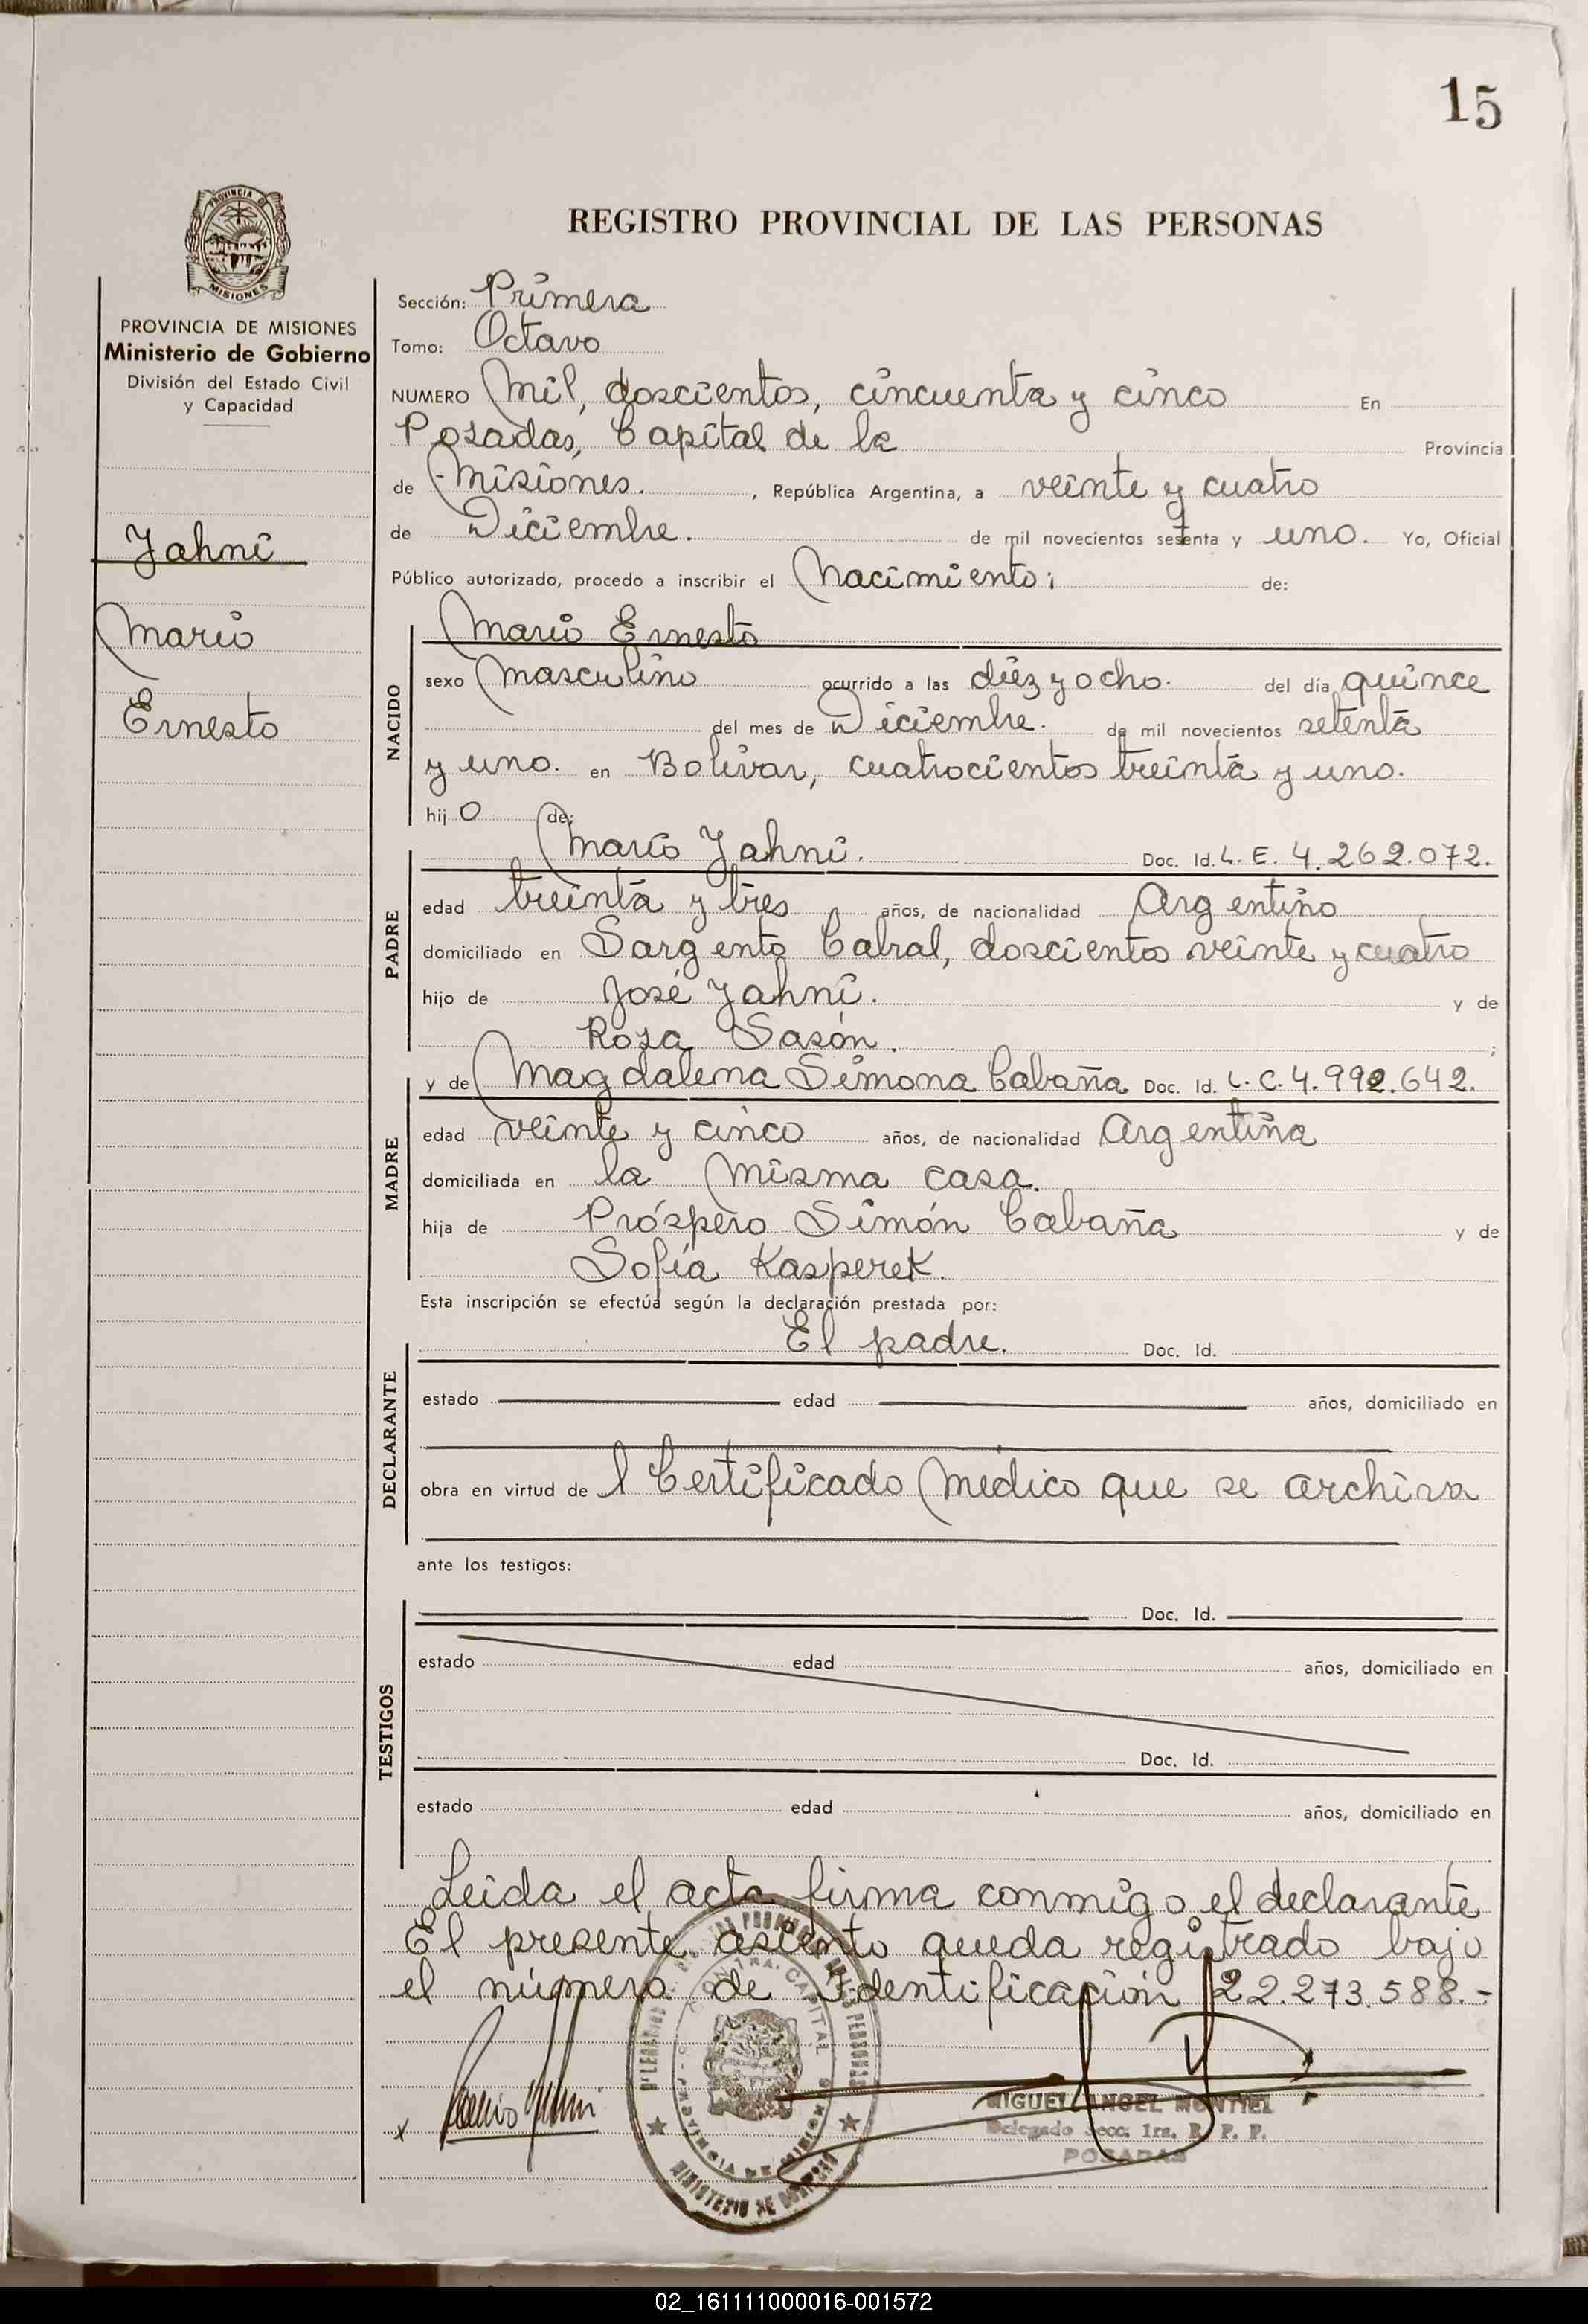 15
PROVINCIA DE
MISIONES
REGISTRO PROVINCIAL DE LAS PERSONAS
PROVINCIA DE MISIONES
Ministerio de Gobierno
División del Estado Civil
y Capacidad
Yahni
Mario
Ernesto
Sección: Primera
Tomo: Octavo
NUMERO Mil, doscientos, cincuenta y cinco En
Posadas, Capital de la Provincia
de Misiones. , República Argentina, a veinte y cuatro
de Diciembre. de mil novecientos setenta y uno. Yo, Oficial
Público autorizado, procedo a inscribir el Nacimiento; de:
NACIDO
Mario Ernesto
sexo Masculino ocurrido a las diéz y ocho. del día quince
del mes de Diciembre. de mil novecientos setenta
y uno. en Bolívar, cuatrocientos treinta y uno.
hij o de:
PADRE
Mario Yahni. Doc. Id. L. E. 4.262.072.
edad treinta y tres años, de nacionalidad Argentino
domiciliado en Sargento Cabral, doscientos veinte y cuatro
hijo de José Yahni. y de
Rosa Sasón. ;
MADRE
y de Magdalena Simona Cabaña Doc. Id. L. C. 4.992.642.
edad veinte y cinco años, de nacionalidad Argentina
domiciliada en la misma casa.
hija de Próspero Simón Cabaña y de
Sofía Kasperek.
Esta inscripción se efectúa según la declaración prestada por:
DECLARANTE
El padre. Doc. Id.
estado edad años, domiciliado en
obra en virtud de l Certificado Médico que se archiva
ante los testigos:
TESTIGOS
Doc. Id.
estado edad años, domiciliado en
Doc. Id.
estado edad años, domiciliado en
Leída el acta firma conmigo el declarante
El presente asiento queda registrado bajo
el número de Identificación 22.273.588.-
MIGUEL ANGEL MONTIEL
Delegado Secc. 1ra. R. P. P.
POSADAS
02_161111000016-001572